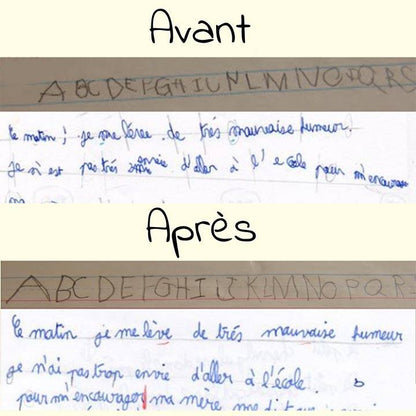 Avant
A B C D E F G H I U N L M N O P Q R S
le matin ; je me lève de trés mauvaise humeur.
je n'est pas trés envie d'aller à l'ecole pour m'encourager
Après
A B C D E F G H I J K L M N O P Q R
le matin je me lève de trés mauvaise humeur
je n'ai pas trop envie d'aller à l'école.
pour m'encourager ma mère me dit